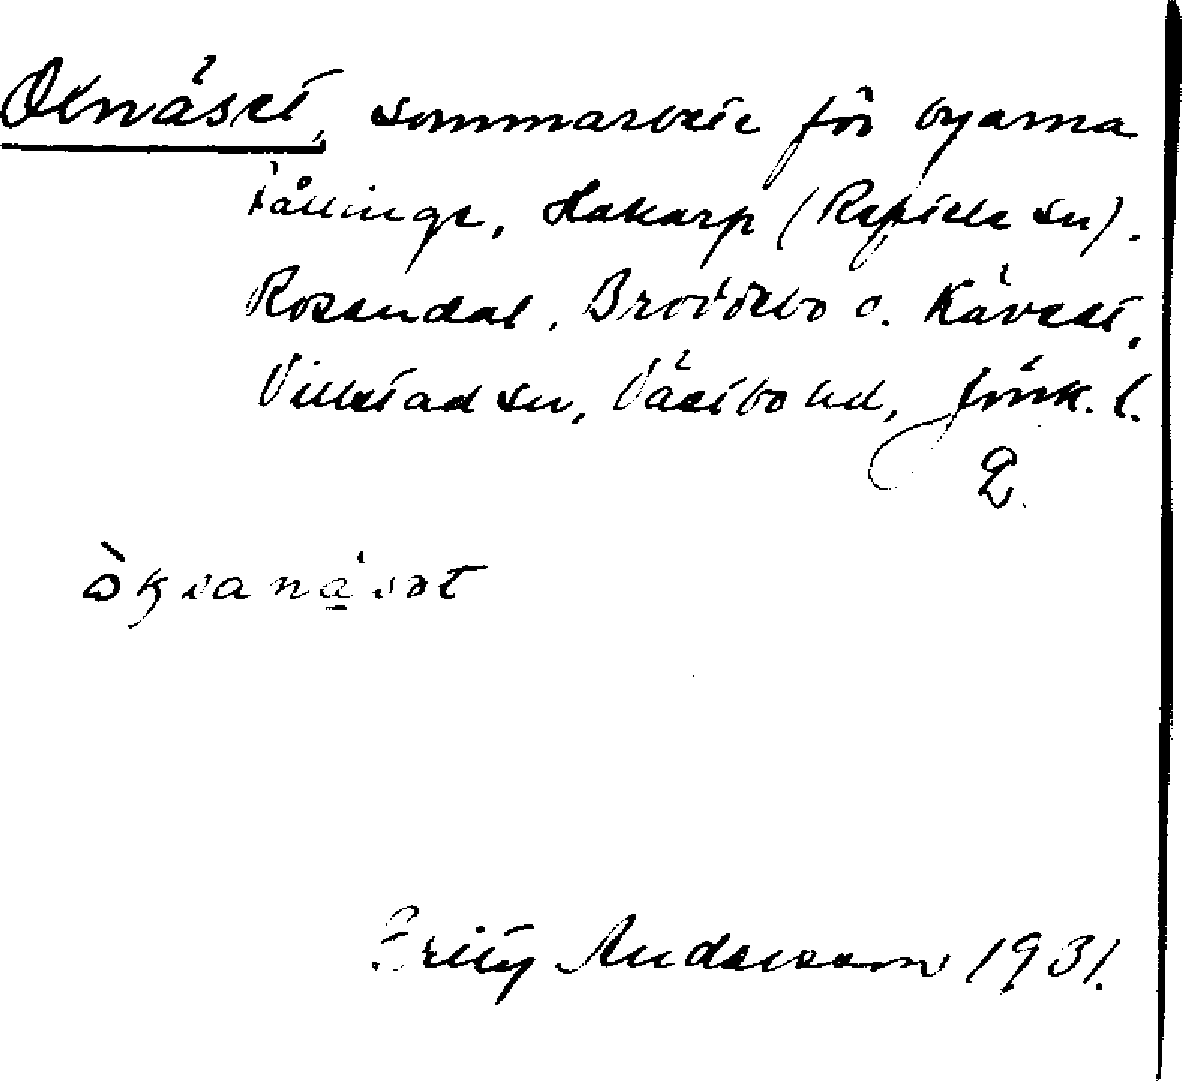 Oxnäset, sommarbete för byarna
Tållinge, Hakarp (Reftele sn).
Rosendal, Broddebo o. Kävset,
Villstad sn, Västbo hd, Jönk. l.
2.
òksanä̱sət
Fritz Andersson 1931.